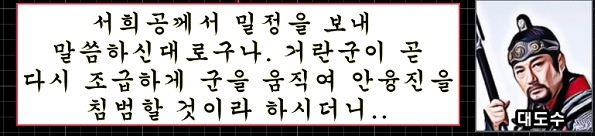 서희공께서 밀정을 보내
말씀하신대로구나. 거란군이 곧
다시 조급하게 군을 움직여 안융진을
침범할 것이라 하시더니..
대도수